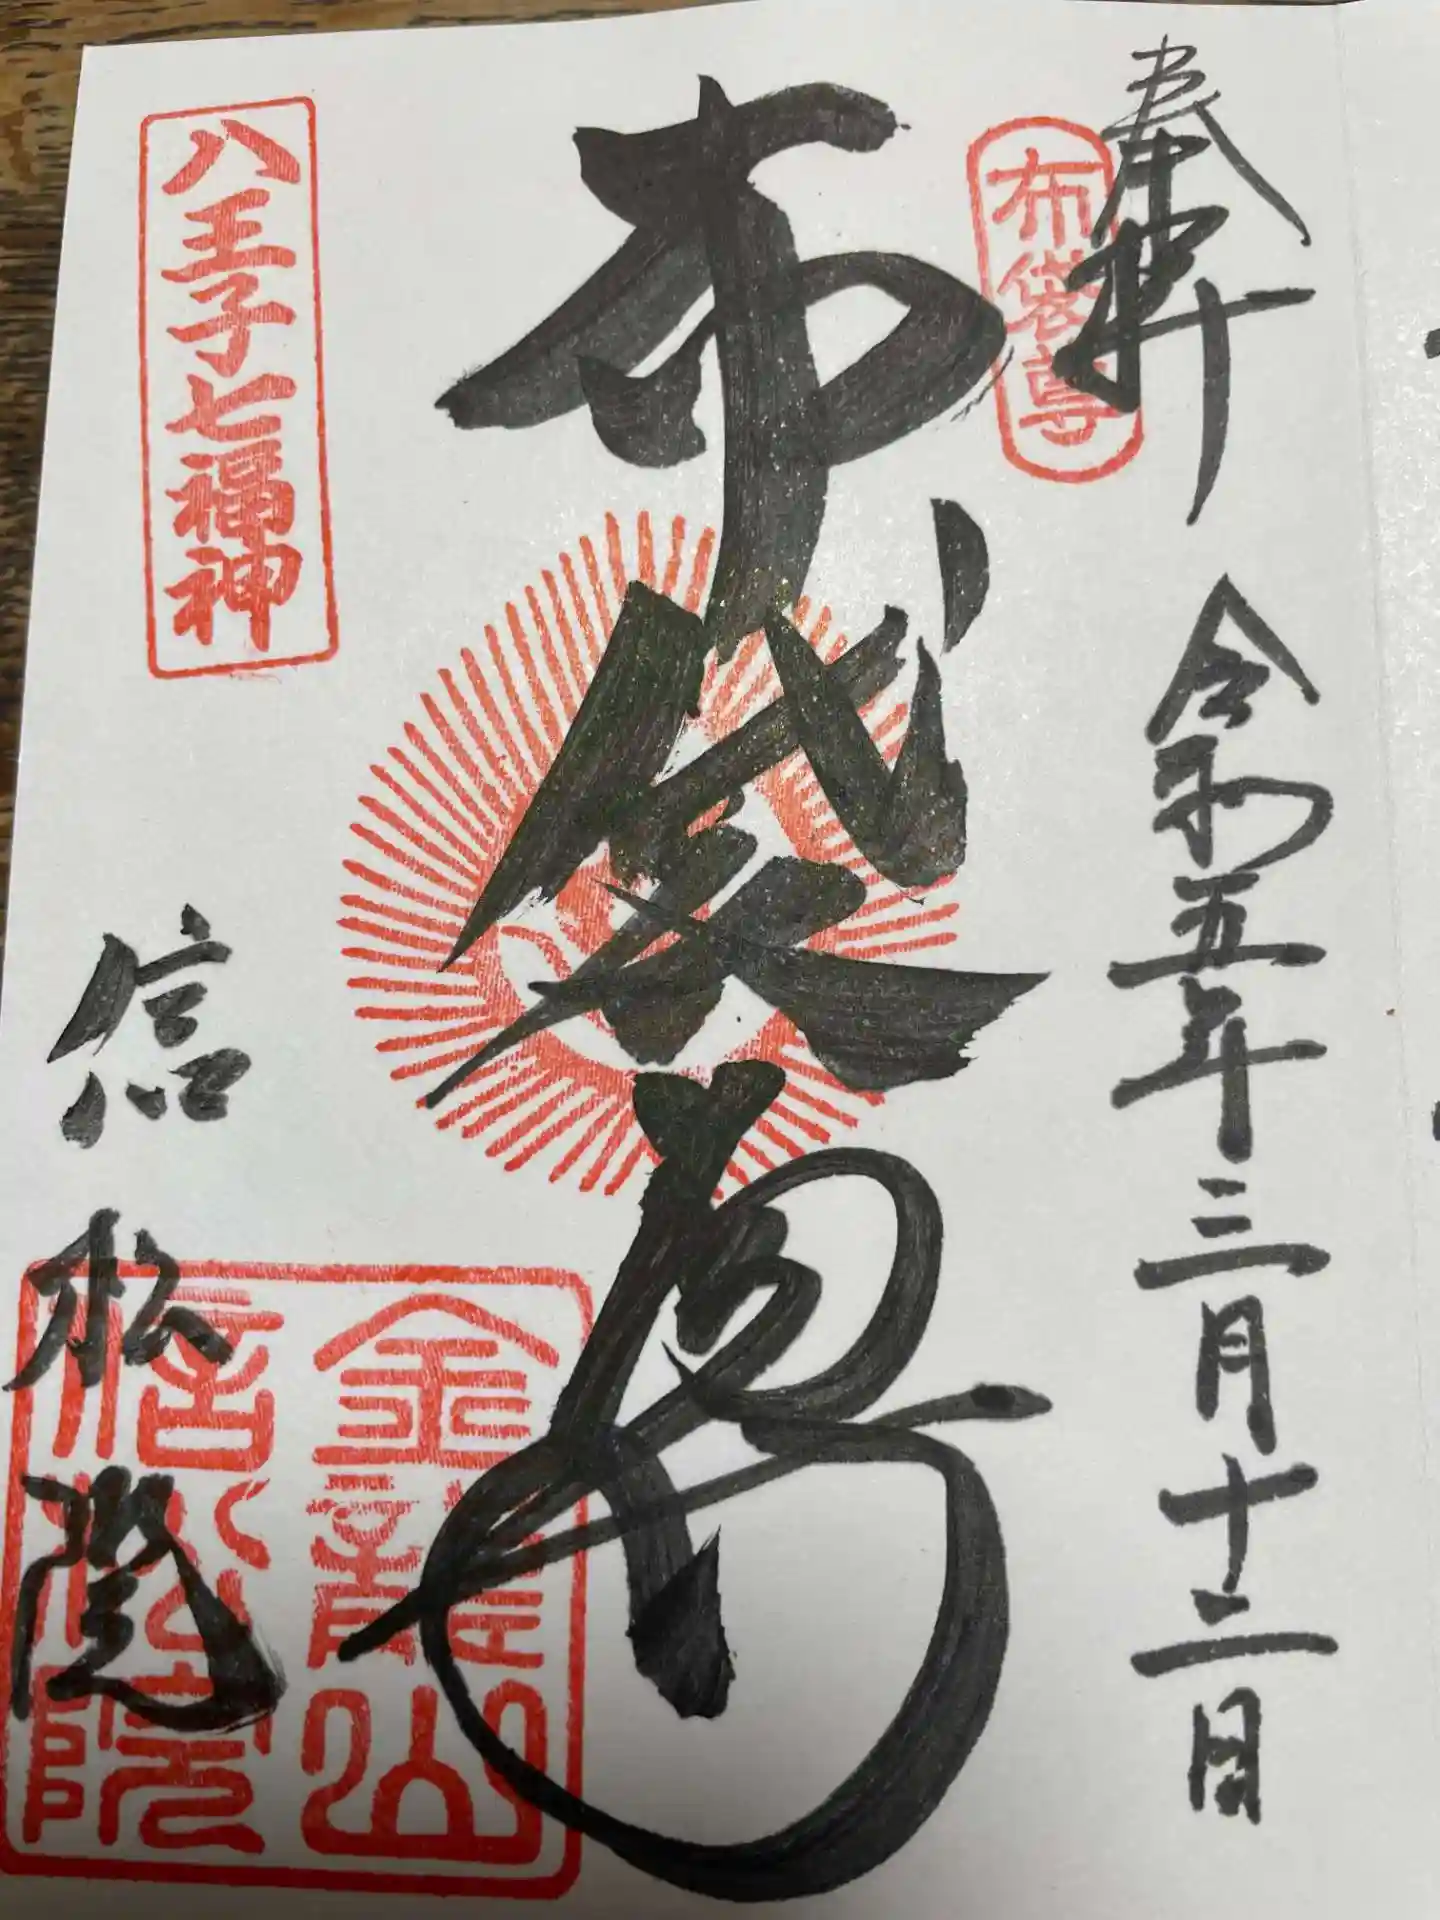 奉拝
令和五年三月十二日
布袋尊
布袋尊
八王子七福神
信松院
金龍山
信松院